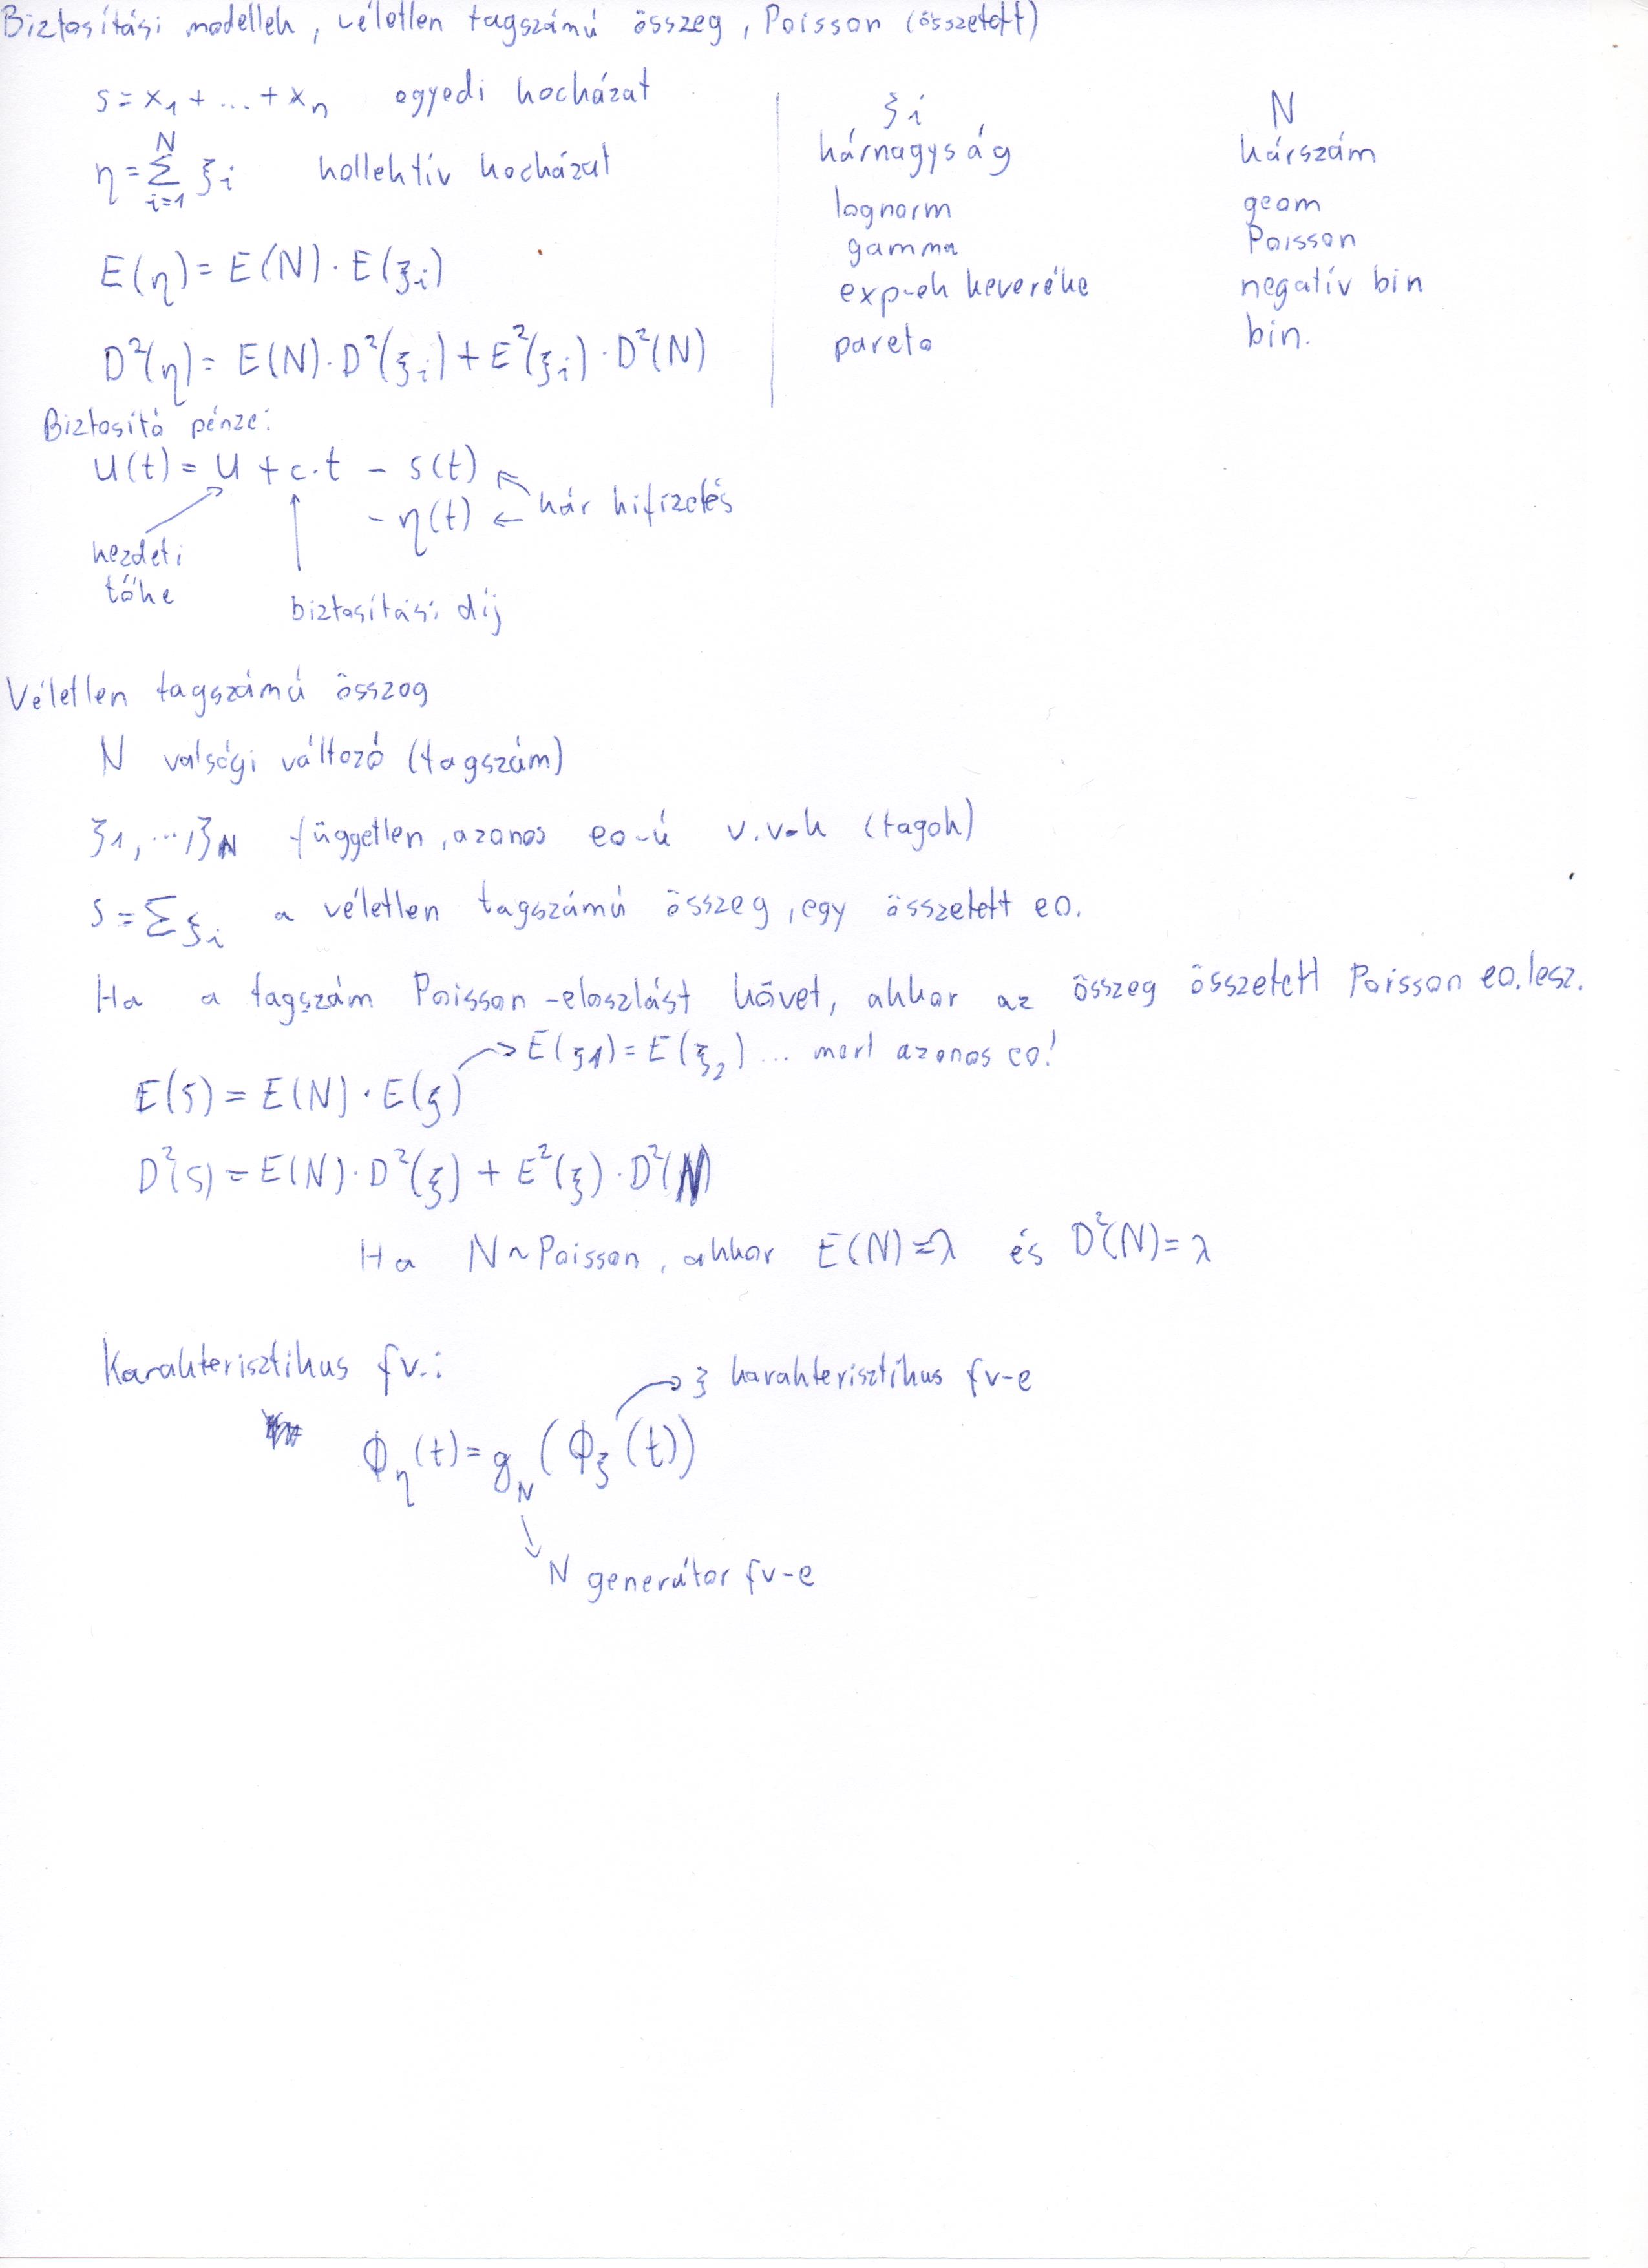 Biztosítási modellek, véletlen tagszámú összeg, Poisson (összetett)
s = x₁ + ... + xₙ egyedi kockázat
η = Σ_{i=1}^{N} ξᵢ kollektív kockázat
E(η) = E(N) · E(ξᵢ)
D²(η) = E(N) · D²(ξᵢ) + E²(ξᵢ) · D²(N)
ξᵢ N
kárnagyság kárszám
lognorm geom
gamma Poisson
exp-ek keveréke negatív bin
pareto bin.
Biztosító pénze:
U(t) = U + c·t - s(t)
- η(t) ← kár kifizetés
kezdeti
tőke
biztosítási díj
Véletlen tagszámú összeg
N valségi változó (tagszám)
ξ1, ..., ξN független, azonos eo-ú v.v-k (tagok)
s = Σξᵢ a véletlen tagszámú összeg, egy összetett eo.
Ha a tagszám Poisson-eloszlást követ, akkor az összeg összetett Poisson eo. lesz.
→ E(ξ1) = E(ξ₂) ... mert azonos eo!
E(s) = E(N) · E(ξ)
D²(s) = E(N) · D²(ξ) + E²(ξ) · D²(N)
Ha N ~ Poisson, akkor E(N) = λ és D²(N) = λ
Karakterisztikus fv.:
→ ξ karakterisztikus fv-e
ϕ_η(t) = g_N(ϕ_ξ(t))
N generátor fv-e